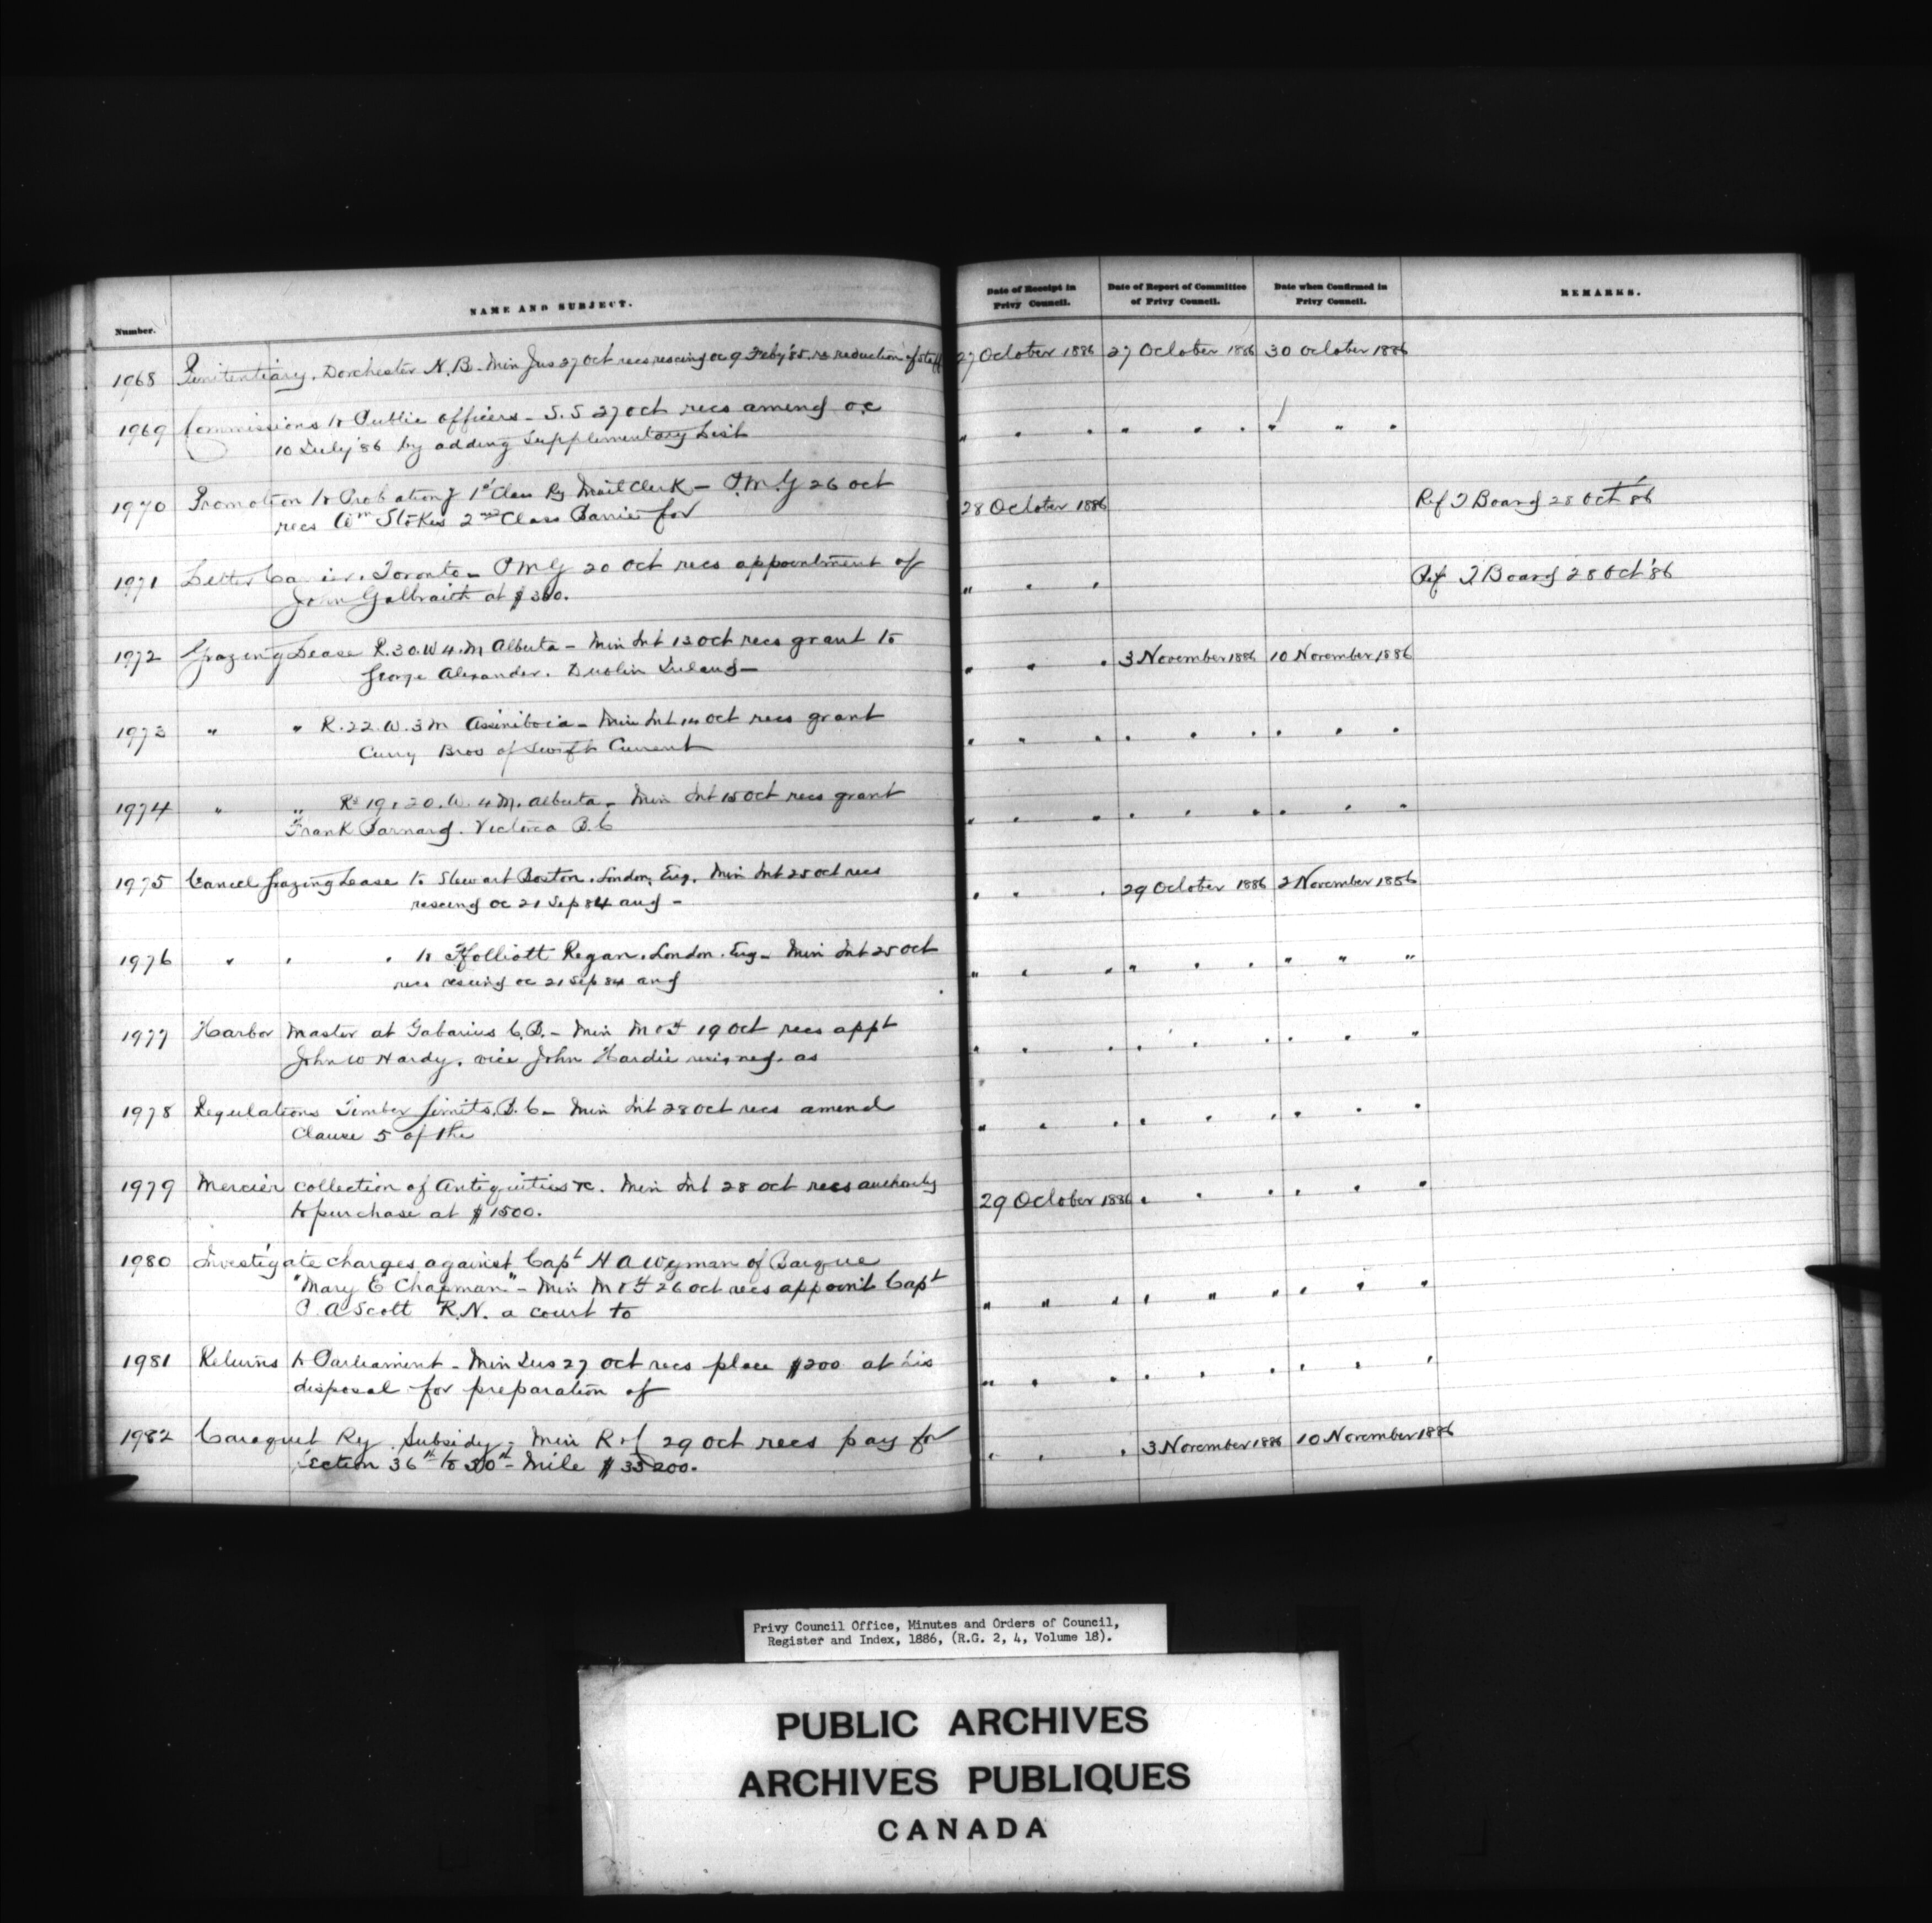 Number. NAME AND SUBJECT. Date of Receipt in Privy Council. Date of Report of Committee of Privy Council. Date when Confirmed in Privy Council. REMARKS.
1968 Penitentiary. Dorchester N.B. Min Jus 27 Oct recs rescing oc 9 Feby '85 re reduction of staff 27 October 1886 27 October 1886 30 October 1886
1969 Commissions to Public officers - S.S 27 Oct recs amend oc
10 July '86 by adding Supplementary List " " " " " " " " "
1970 Promotion to Probation of 1st Class Ry Mail Clerk - P.M.G 26 Oct
recs Wm Stokes 2nd Class Barrie for 28 October 1886 Ref T Board 28 Oct '86
1971 Letter Carrier. Toronto - PMG 20 Oct recs appointment of
John Galbraith at $360. " " " Ref T Board 28 Oct '86
1972 Grazing Lease R.30.W 4.M Alberta - Min Int 13 Oct recs grant to
George Alexander. Dublin Ireland - " " " 3 November 1886 10 November 1886
1973 " " R.22.W.3M Assiniboia - Min Int 14 Oct recs grant
Curry Bros of Swift Current " " " " " " " " "
1974 " " Rs 19 & 20.W.4M. Alberta - Min Int 15 Oct recs grant
Frank Barnard. Victoria B.C " " " " " " " " "
1975 Cancel Grazing Lease to Stewart Boston. London, Eng. Min Int 25 Oct recs
rescing oc 21 Sep 84 and - " " " 29 October 1886 2 November 1886
1976 " " " to Ffolliott Regan. London. Eng - Min Int 25 Oct
recs rescing oc 21 Sep 84 and " " " " " " " " "
1977 Harbor Master at Gabarus C.B. - Min M & F 19 Oct recs appt
John W Hardy. vice John Hardie resigned. as " " " " " " " " "
1978 Regulations Timber Limits. B.C - Min Int 28 Oct recs amend
Clause 5 of the " " " " " " " " "
1979 Mercier collection of Antiquities &c. Min Int 28 Oct recs authority
to purchase at $1500. 29 October 1886 " " " " " "
1980 Investigate charges against Capt H A Wyman of Barque
"Mary E Chapman" - Min M & F 26 Oct recs appoint Capt
P. A Scott R.N. a court to " " " " " " " " "
1981 Returns to Parliament - Min Jus 27 Oct recs place $200 at his
disposal for preparation of " " " " " " " " "
1982 Caraquet Ry. Subsidy - Min R & C 29 Oct recs pay for
Section 36th to 50th Mile $35200. " " " 3 November 1886 10 November 1886
Privy Council Office, Minutes and Orders of Council,
Register and Index, 1886, (R.G. 2, 4, Volume 18).
PUBLIC ARCHIVES
ARCHIVES PUBLIQUES
CANADA